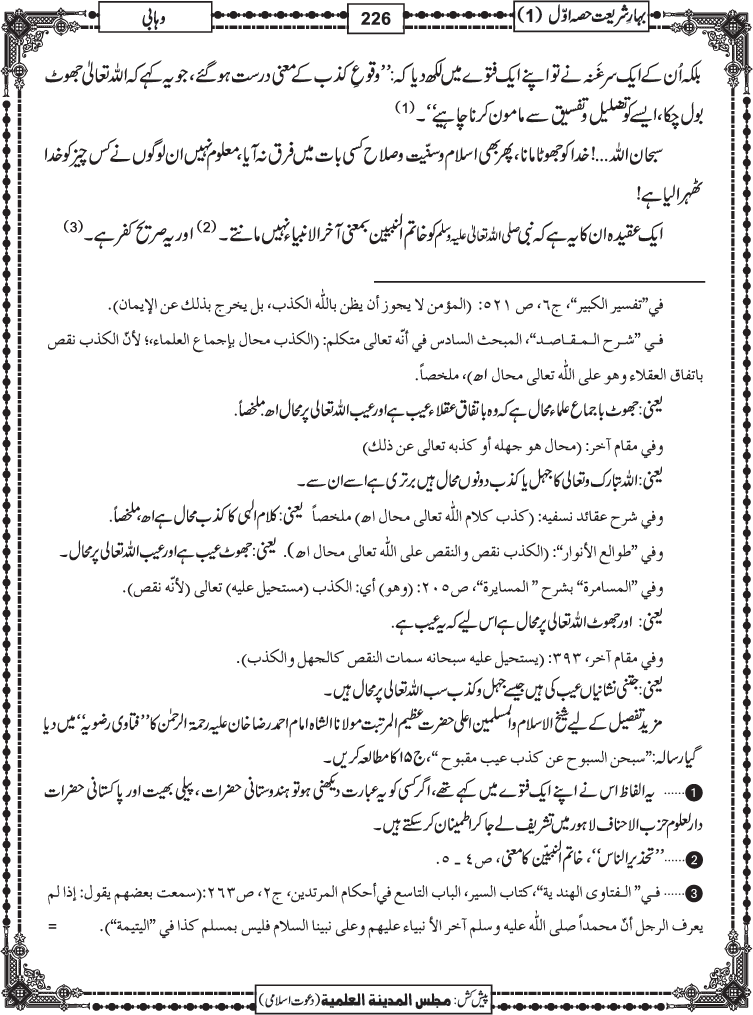 بہارِ شریعت حصہ اوّل (1)
226
وہابی
بلکہ اُن کے ایک سرغَنہ نے تو اپنے ایک فتوے میں لکھ دیا کہ: ’’وقوعِ کذب کے معنی درست ہو گئے، جو یہ کہے کہ اللہ تعالیٰ جھوٹ
بول چکا، ایسے کو تضلیل و تفسیق سے مامون کرنا چاہیے‘‘۔ (1)
سبحان اللہ ...! خدا کو جھوٹا مانا، پھر بھی اسلام و سنّیت و صلاح کسی بات میں فرق نہ آیا، معلوم نہیں ان لوگوں نے کس چیز کو خدا
ٹھہرا لیا ہے!
ایک عقیدہ ان کا یہ ہے کہ نبی صلی اللہ تعالیٰ علیہ وسلم کو خاتم النبیین بمعنی آخر الانبیاء نہیں مانتے۔ (2) اور یہ صریح کفر ہے۔ (3)
في ”تفسير الكبير“، ج٦، ص ٥٢١: (المؤمن لا يجوز أن يظن بالله الكذب، بل يخرج بذلك عن الإيمان).
فـي ”شـرح الـمـقـاصـد“، المبحث السادس في أنّه تعالى متكلم: (الكذب محال بإجماع العلماء،؛ لأنّ الكذب نقص
باتفاق العقلاء وهو على الله تعالى محال اھ)، ملخصاً.
یعنی: جھوٹ باجماع علماء محال ہے کہ وہ باتفاق عقلاء عیب ہے اور عیب اللہ تعالی پر محال اھ ملخصاً.
وفي مقام آخر: (محال هو جهله أو كذبه تعالى عن ذلك)
یعنی: اللہ تبارک و تعالی کا جہل یا کذب دونوں محال ہیں برتری ہے اسے ان سے۔
وفي شرح عقائد نسفيه: (كذب كلام الله تعالى محال اھ) ملخصاً یعنی: کلام الٰہی کا کذب محال ہے اھ، ملخصاً.
وفي ”طوالع الأنوار“: (الكذب نقص والنقص على الله تعالى محال اھ). یعنی: جھوٹ عیب ہے اور عیب اللہ تعالی پر محال۔
وفي ”المسامرة“ بشرح ” المسايرة“، ص٢٠٥: (وهو) أي: الكذب (مستحيل عليه) تعالى (لأنّه نقص).
یعنی: اور جھوٹ اللہ تعالی پر محال ہے اس لیے کہ یہ عیب ہے.
وفي مقام آخر، ٣٩٣: (يستحيل عليه سبحانه سمات النقص كالجهل والكذب).
یعنی: جتنی نشانیاں عیب کی ہیں جیسے جہل و کذب سب اللہ تعالی پر محال ہیں۔
مزید تفصیل کے لیے شیخ الاسلام والمسلمین اعلی حضرت عظیم المرتبت مولانا الشاہ امام احمد رضا خان علیہ رحمۃ الرحمٰن کا ’’فتاوی رضویہ‘‘ میں دیا
گیا رسالہ: ”سبحن السبوح عن كذب عيب مقبوح “، ج١٥ کا مطالعہ کریں۔
1...... یہ الفاظ اس نے اپنے ایک فتوے میں کہے تھے، اگر کسی کو یہ عبارت دیکھنی ہو تو ہندوستانی حضرات، پیلی بھیت اور پاکستانی حضرات
دارلعلوم حزب الاحناف لاہور میں تشریف لے جا کر اطمینان کر سکتے ہیں۔
2...... ’’تحذیر الناس‘‘، خاتم النبیّین کا معنی، ص٤ ـ ٥.
3...... فـي” الـفتاوى الهندية“، كتاب السير، الباب التاسع في أحكام المرتدين، ج٢، ص٢٦٣:(سمعت بعضهم يقول: إذا لم
يعرف الرجل أنّ محمداً صلى الله عليه وسلم آخر الأنبياء عليهم وعلى نبينا السلام فليس بمسلم كذا في ”اليتيمة“). =
پیش کش: مجلس المدينة العلمية (دعوت اسلامی)